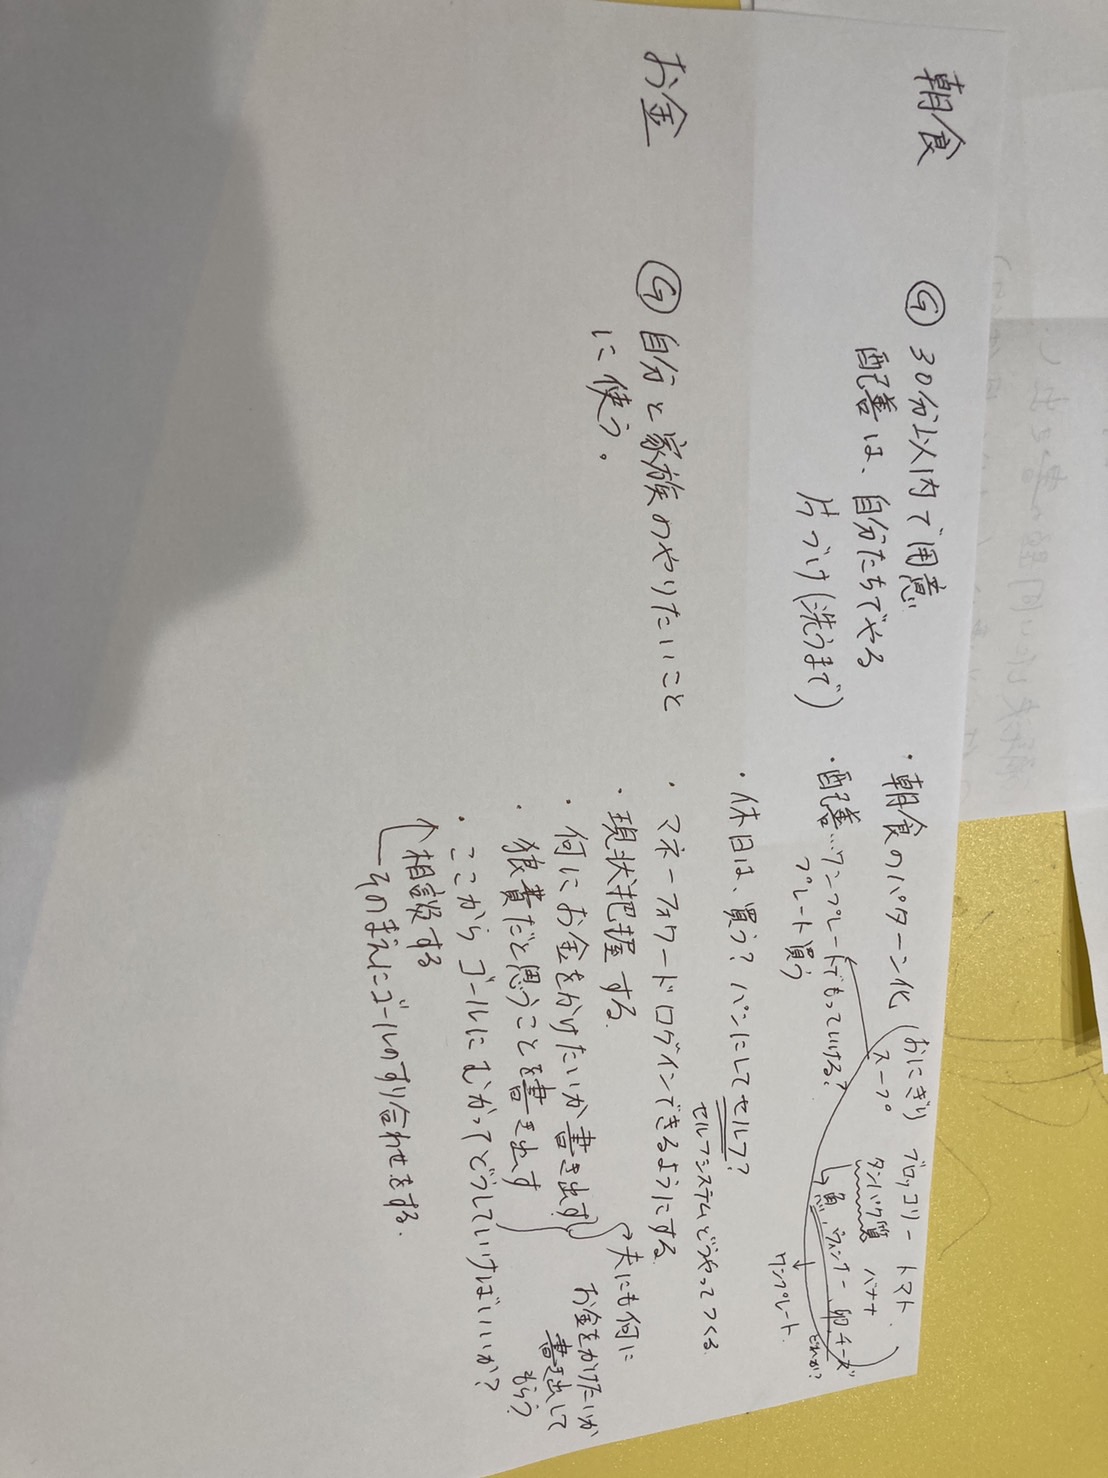 朝食
Ⓖ 30分以内で用意
配善は、自分たちでやる
片づけ(洗うまで)
・朝食のパターン化(おにぎり ブロッコリー トマト
スープ タンパク質 バナナ
↳魚、ウィンナー 卵、チーズ)
どれか?
・配善…ワンプレートでもっていける?
プレート買う
ワンプレート
・休日は、買う? パンにしてセルフ?
セルフシステムどうやってつくる
お金
Ⓖ 自分と家族のやりたいこと
に使う。
・マネーフォワードログインできるようにする
・現状把握する
・何にお金をかけたいか書き出す
・狼費だと思うことを書き出す
夫にも何に
お金をかけたいか
書き出して
もらう?
・ここからゴールにむかってどうしていけばいいか?
↑相談する
そのまえにゴールのすり合わせをする.